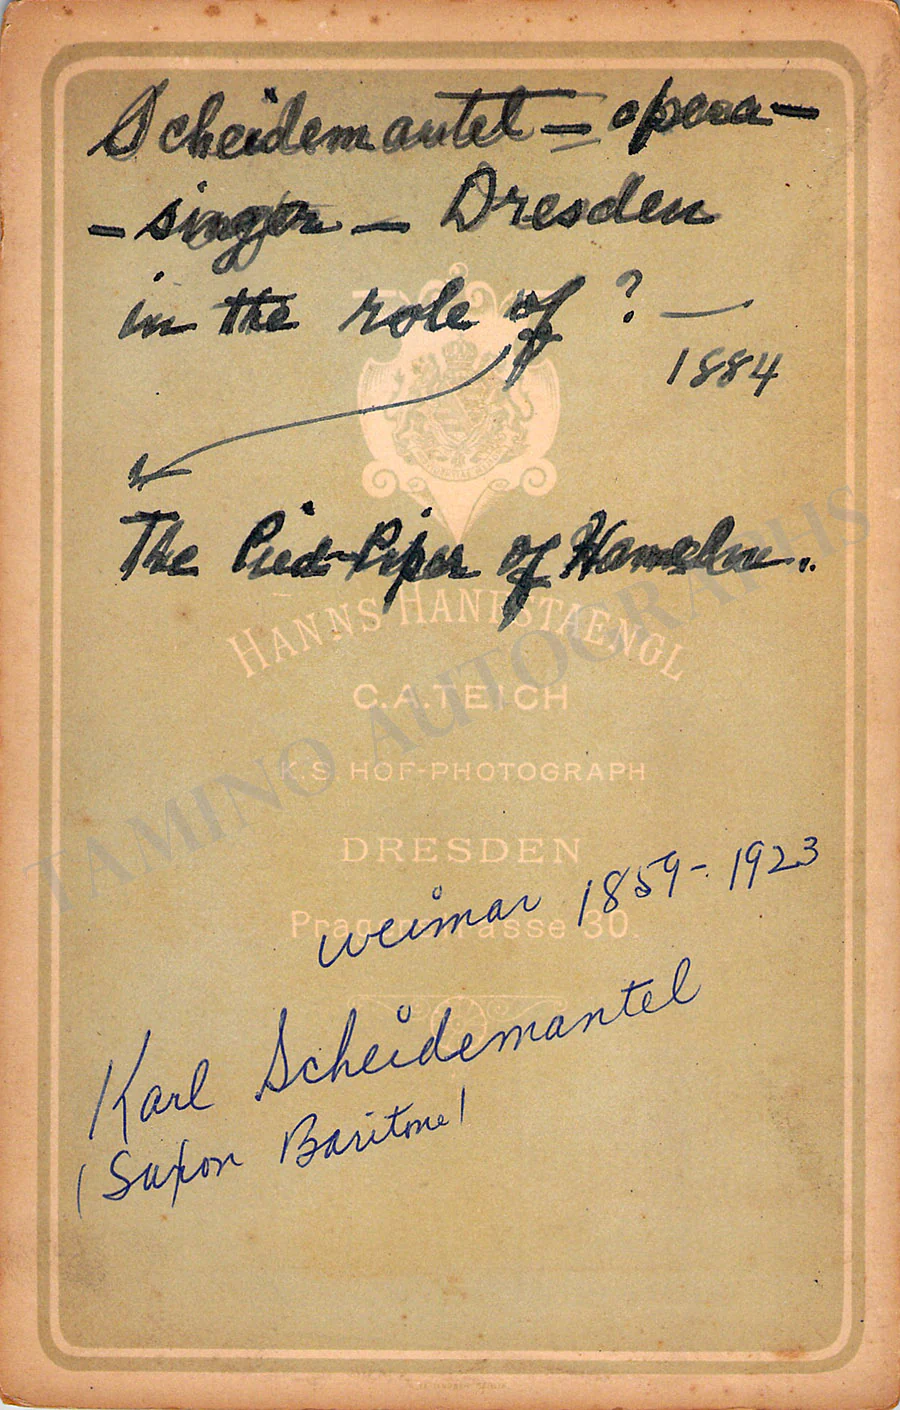 Scheidemantel = opera -
- singer - Dresden
in the role of ? —
1884
The Pied-Piper of Hameln..
HANNS HANFSTAENGL
C.A.TEICH
K.S. HOF-PHOTOGRAPH
DRESDEN
Pragerstrasse 30.
weimar 1859-1923
Karl Scheidemantel
(Saxon Baritone)
TAMINO AUTOGRAPHS